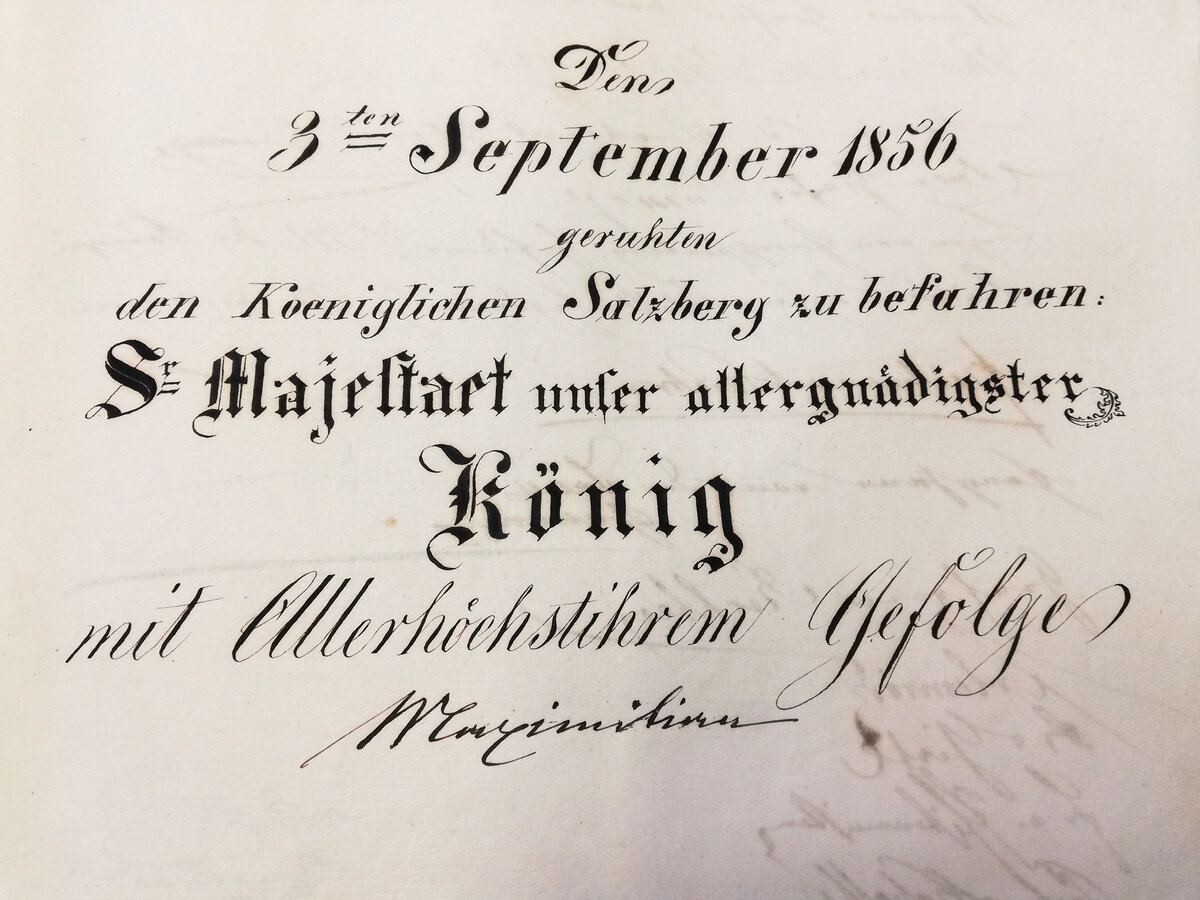 Den
3ten September 1856
geruhten
den Koeniglichen Salzberg zu befahren:
Sr Majestaet unser allergnädigster
König
mit Allerhöchstihrem Gefolge
Maximilian